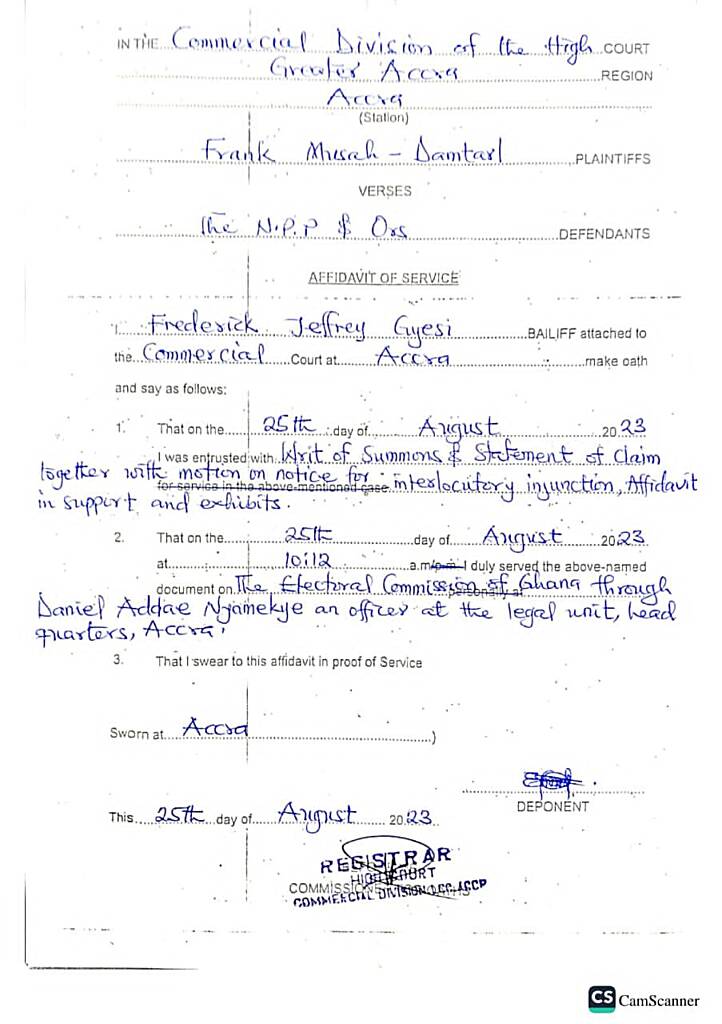 IN THE Commercial Division of the High COURT
Greater Accra REGION
Accra
(Station)
Frank Musah - Damtarl PLAINTIFFS
VERSES
The N.P.P & Ors DEFENDANTS
AFFIDAVIT OF SERVICE
I, Frederick Jeffrey Gyesi BAILIFF attached to
the Commercial Court at Accra make oath
and say as follows:
1. That on the 25th day of August 2023
I was entrusted with Writ of Summons & Statement of Claim
together with motion on notice for for service in the above-mentioned case interlocutory injunction, Affidavit
in support and exhibits.
2. That on the 25th day of August 2023
at 10:12 a.m/p.m I duly served the above-named
document on The Electoral Commission of Ghana through
Daniel Addae Nyamekye an officer at the legal unit, head
quarters, Accra.
3. That I swear to this affidavit in proof of Service
Sworn at Accra )
DEPONENT
This 25th day of August 2023
REGISTRAR
HIGH COURT
COMMERCIAL DIVISION
CS CamScanner